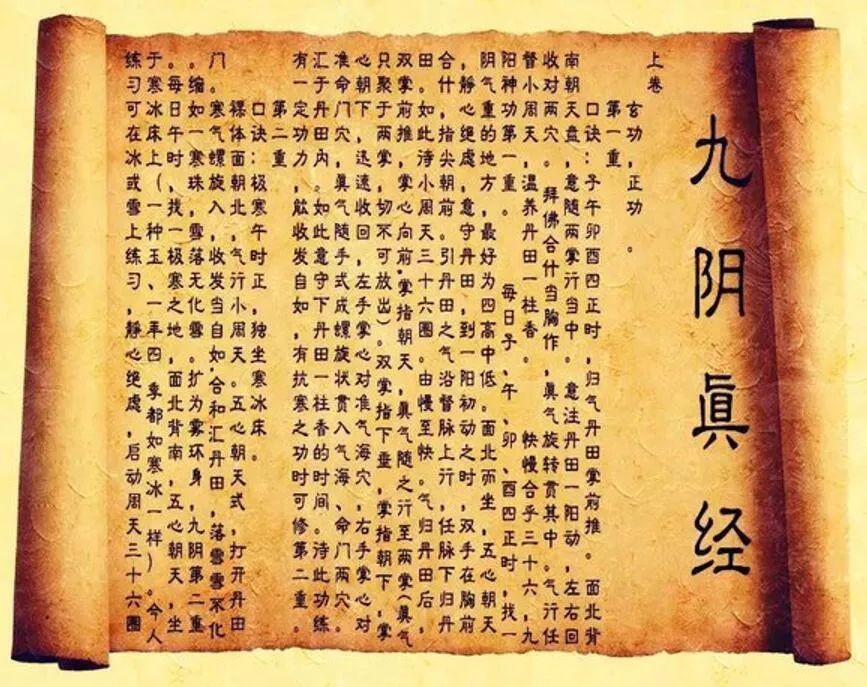 九阴眞经
上卷
玄功，正功。
第一重
口诀：子午卯酉四正时，归气丹田掌前推。 面北背
南朝天盘，意随两掌行当中。意注丹田一阳动，左右回
收对两穴。 拜佛合什当胸作，眞气旋转贯其中。气行任
督小周天，温养丹田一柱香。 快慢合乎三十六，九
阳神功第一重。 每日子、午、卯、酉四正时，找一
阴气重的地方，最好为四高中低。面北而坐，五心朝天
，静心绝虑，意守丹田，到一阳初动之时，双手在胸前
合什，指尖朝前。引丹田之气沿督脉上行，任脉下归丹
田。如此待小周天三十六圈。由慢至快。气归丹田后，
双掌前推，掌心向前，掌指朝天，眞气随之行至两掌（眞气
只聚于两掌，切不可放出）。双掌指下垂，掌指朝下，掌
心朝下，迅速收回，左手掌心对准气海穴，右手掌心对
准命门穴，眞气随手式成螺旋状贯入气海、命门两穴。
汇于丹田内。如此意守下丹田一柱香的时间。待此功练
有一定功力，能收发自如，有抗寒之功时可修第二重。
第二重
口诀：极寒午时正，独坐寒冰床。
裸体面朝北，气行小周天。五心朝天式，打开丹田
门。 寒气螺旋入，收发当自如，合和汇丹田，落雪雪不化
。缩如一寒珠，雪落无化雪。扩为雾环身，九阴第二重
。每日午时，找一极寒之地，面北背南，五心朝天，坐
于寒冰床上（一种玉、一年四季都如寒冰一样）。今人
练习可在冰或雪上练习，静心绝虑，启动周天三十六圈